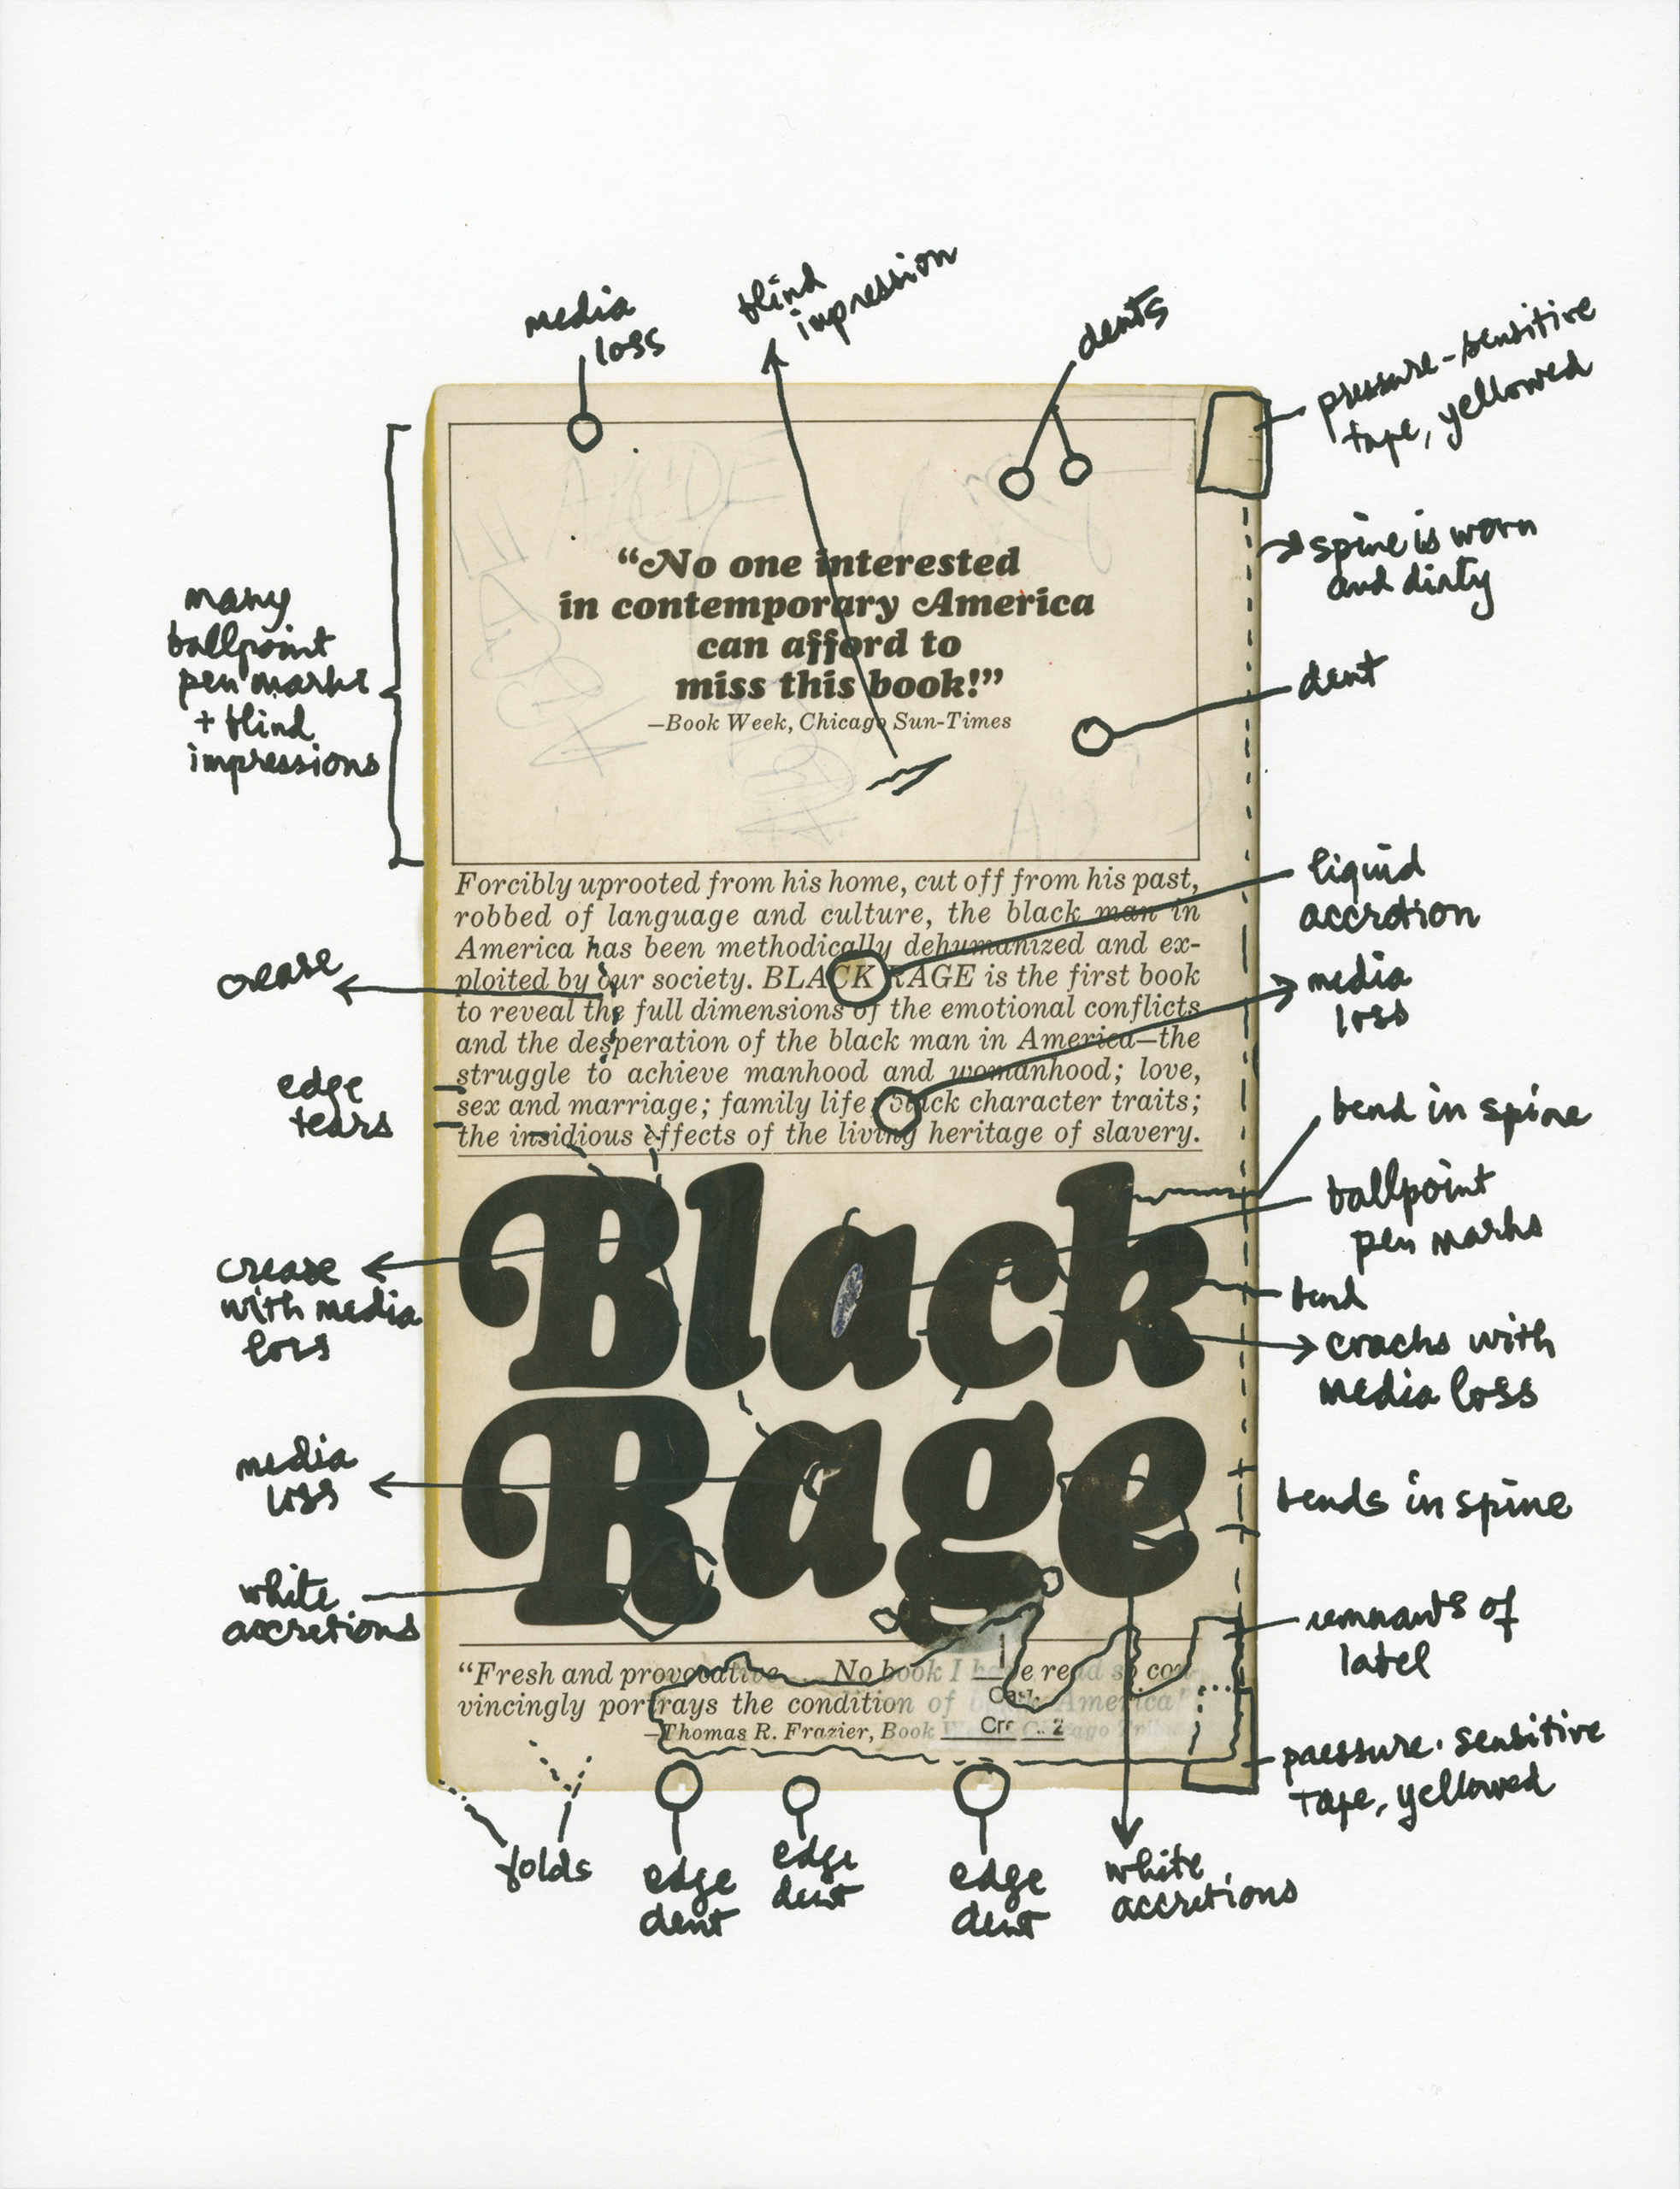 media
loss
blind
impression
dents
pressure-sensitive
tape, yellowed
many
ballpoint
pen marks
+ blind
impressions
"No one interested
in contemporary America
can afford to
miss this book!"
—Book Week, Chicago Sun-Times
spine is worn
and dirty
dent
Forcibly uprooted from his home, cut off from his past,
robbed of language and culture, the black man in
America has been methodically dehumanized and ex-
ploited by our society. BLACK RAGE is the first book
to reveal the full dimensions of the emotional conflicts
and the desperation of the black man in America—the
struggle to achieve manhood and womanhood; love,
sex and marriage; family life; black character traits;
the insidious effects of the living heritage of slavery.
liquid
accretion
media
loss
crease
edge
tears
bend in spine
ballpoint
pen marks
bend
cracks with
media loss
crease
with media
loss
Black
Rage
media
loss
bends in spine
white
accretions
remnants of
label
"Fresh and provocative... No book I have read so con-
vincingly portrays the condition of black America"
—Thomas R. Frazier, Book Week, Chicago Tribune
pressure-sensitive
tape, yellowed
folds
edge
dent
edge
dent
edge
dent
white
accretions